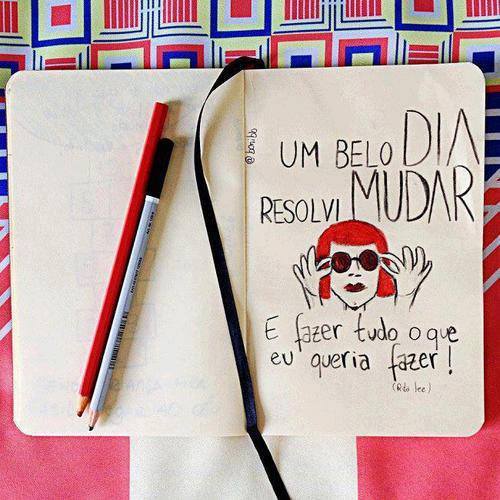 @bonibb
UM BELO DIA
RESOLVI MUDAR
E fazer tudo o que
eu queria fazer!
(Rita lee)